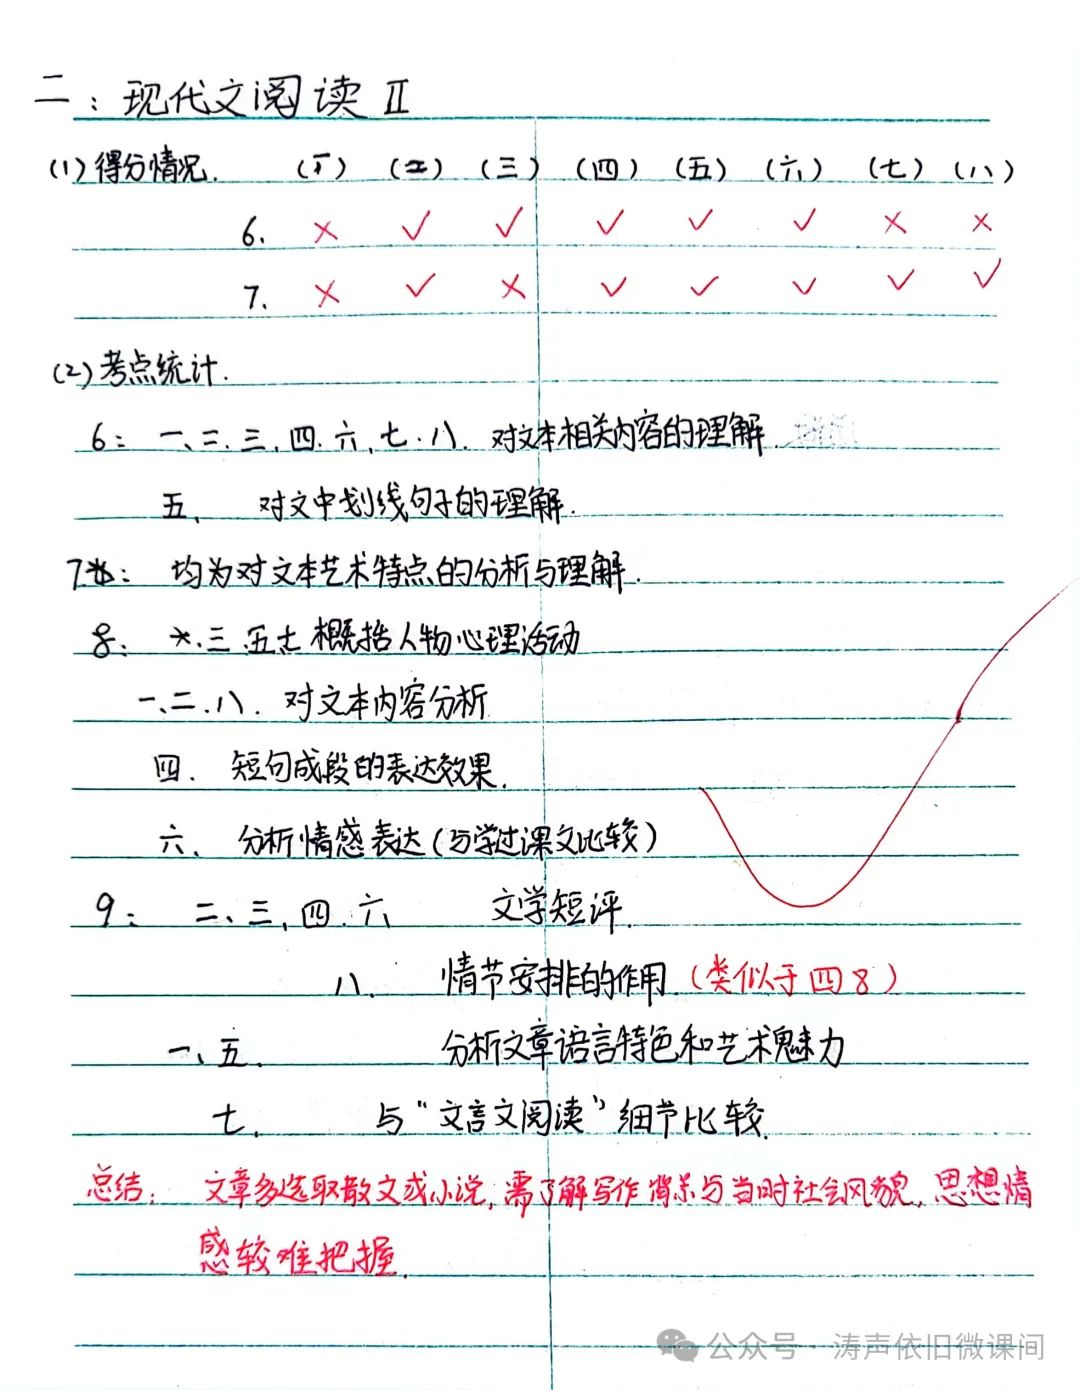 二：现代文阅读Ⅱ
(1)得分情况. (一) (二) (三) (四) (五) (六) (七) (八)
6. × ✓ ✓ ✓ ✓ ✓ × ×
7. × ✓ × ✓ ✓ ✓ ✓ ✓
(2)考点统计.
6： 一、二.三,四.六,七.八. 对文本相关内容的理解.
五、 对文中划线句子的理解.
7： 均为对文本艺术特点的分析与理解.
8： 三.五七 概括人物心理活动
一、二.八. 对文本内容分析
四. 短句成段的表达效果.
六、 分析情感表达(与学过课文比较)
9： 二、三,四.六 文学短评.
八. 情节安排的作用.(类似于四8)
一、五. 分析文章语言特色和艺术魅力
七. 与“文言文阅读”细节比较.
总结： 文章多选取散文或小说,需了解写作背景与当时社会风貌,思想情
感较难把握.
公众号·涛声依旧微课间